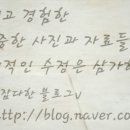 고 경험한
중한 사진과 자료들
적인 수정은 삼가
잡다한 블로그v
http://blog.naver.